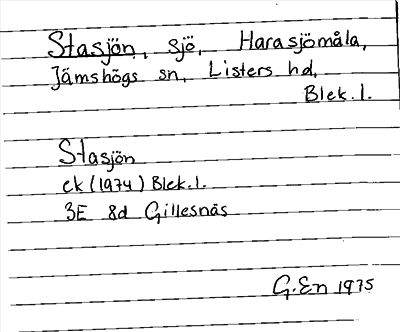 Stasjön, sjö, Harasjömåla,
Jämshögs sn, Listers hd,
Blek.l.
Stasjön
ek (1974) Blek.l.
3E 8d Gillesnäs
G.En 1975